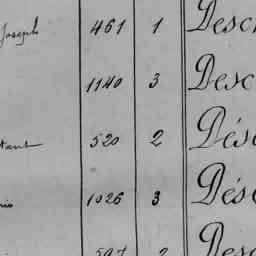 Joseph 461 1 Desc
1140 3 Desc
tant 520 2 Dés
1026 3 Dés
2 Desc